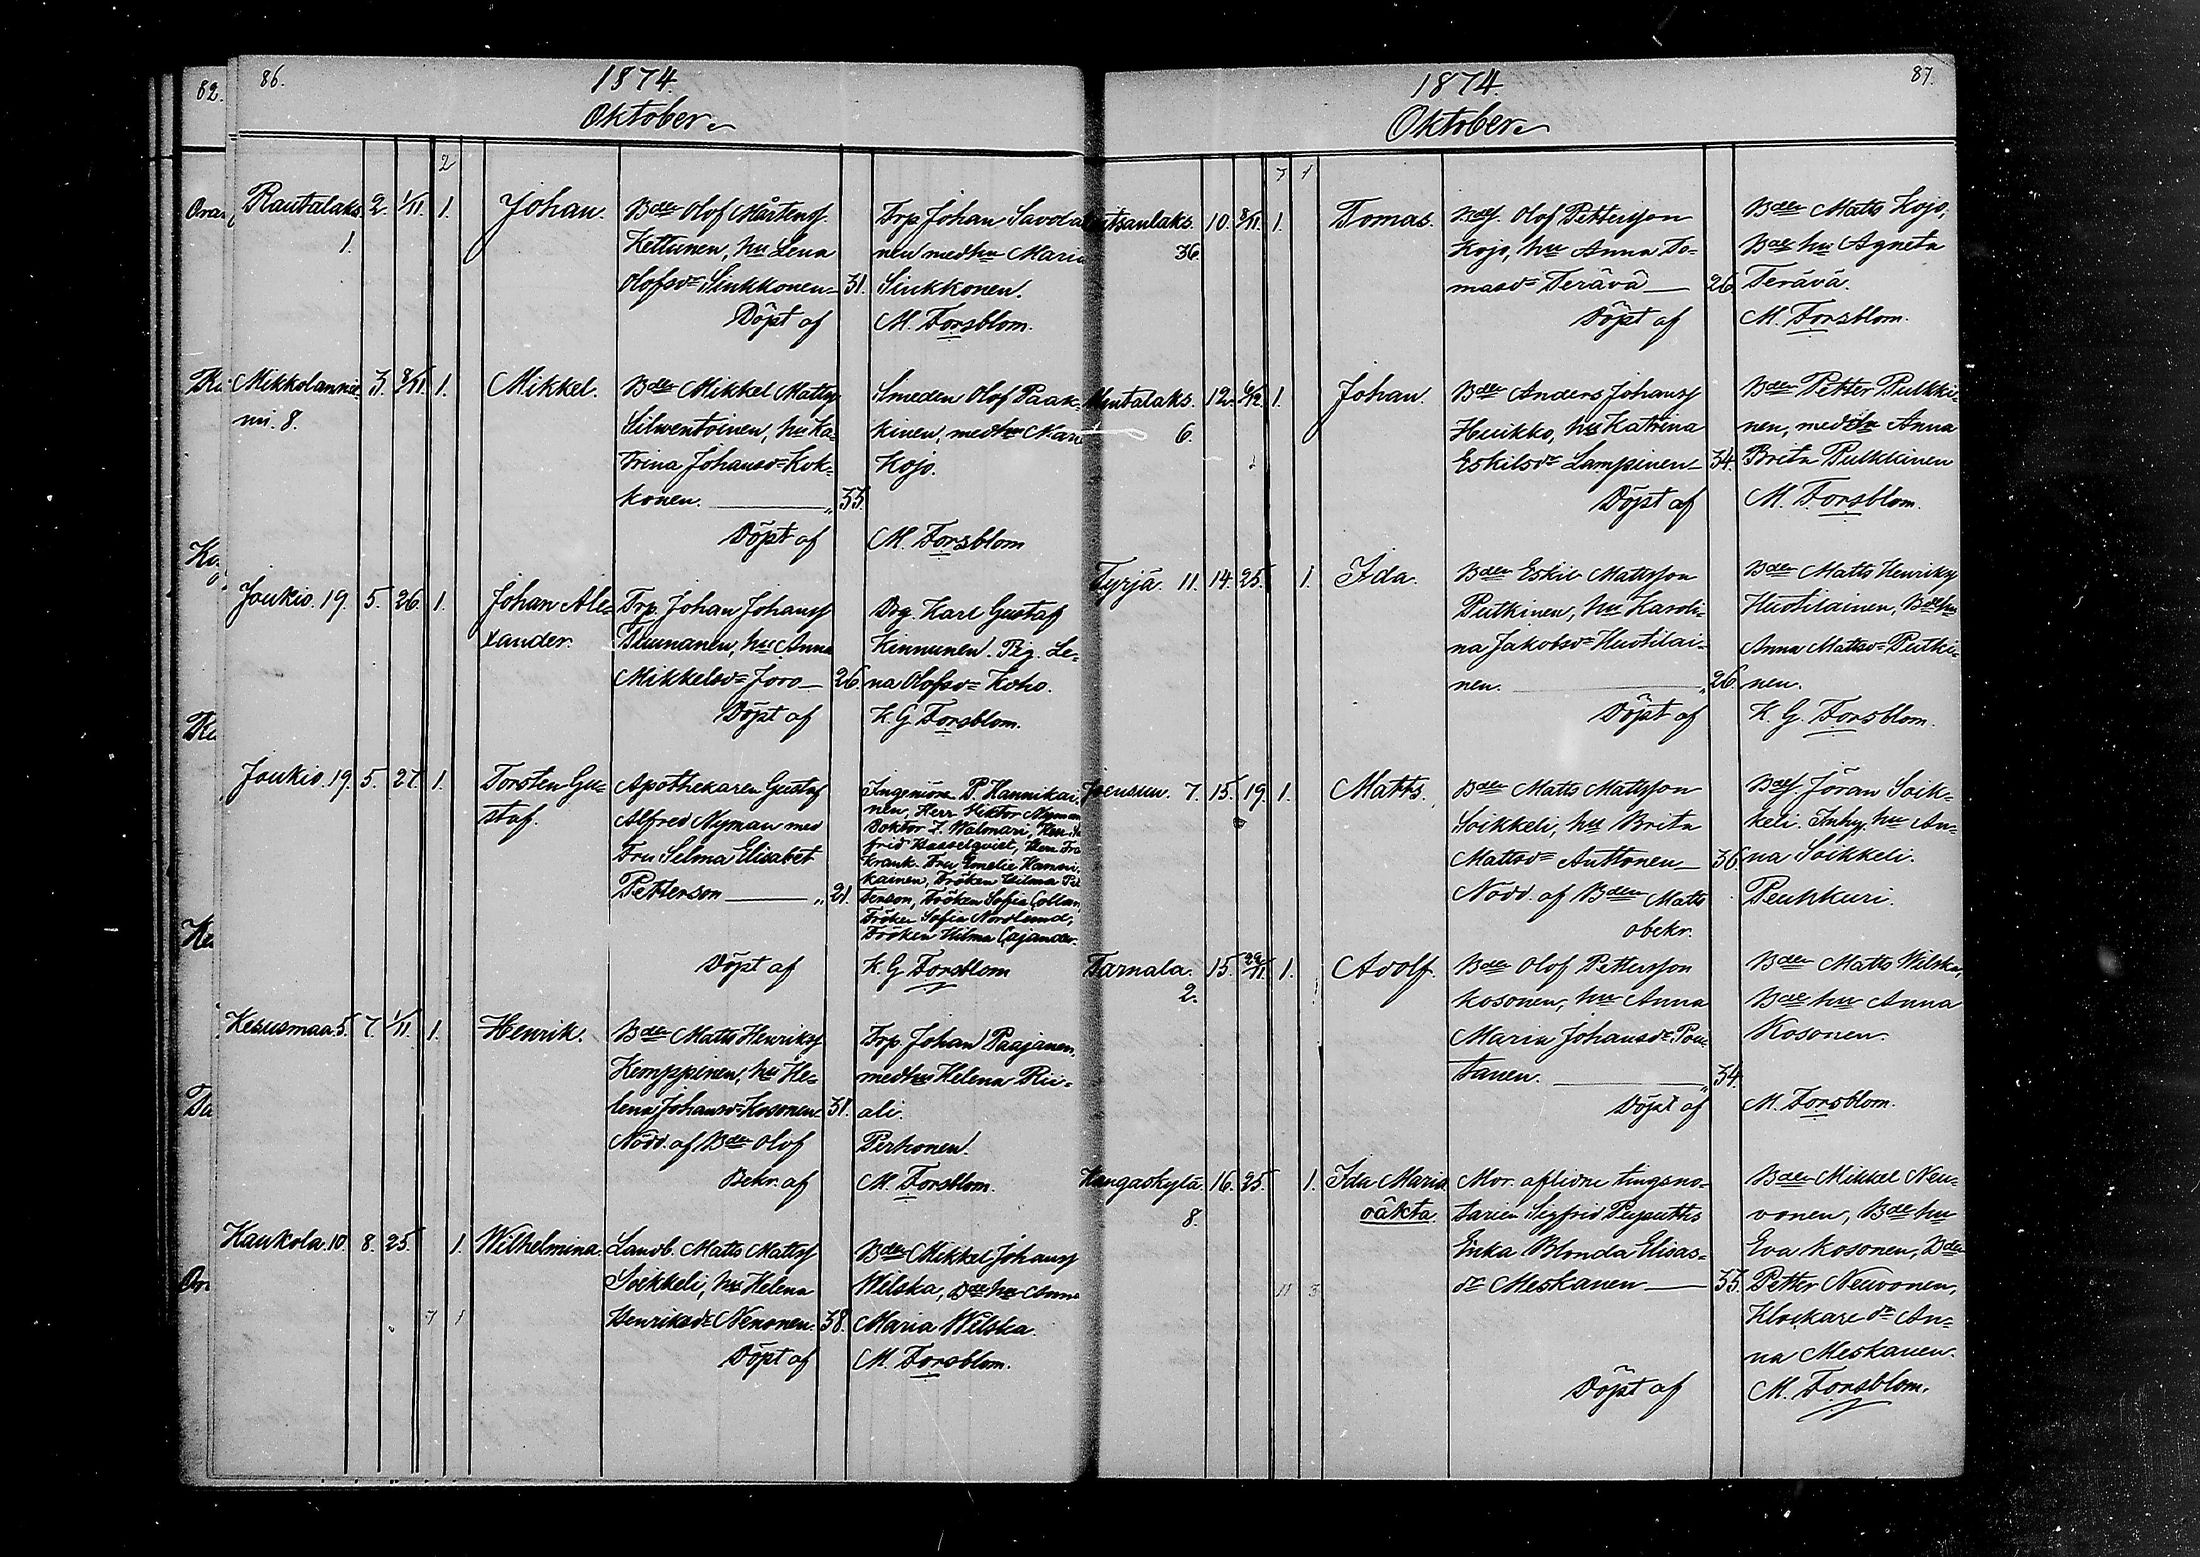 82.
86.
1874.
Oktober.
2
Rautalaks. 2. 1/11. 1. Johan. Bden Olof Mårtensf.
1. Kettunen, hu Lena
Olofsdr Sinkkonen 31.
Döpt af
Trp. Johan Savolai
nen med hu Maria
Sinkkonen.
M. Forsblom.
Mikkolannie- 3. 8/11. 1. Mikkel. Bden Mikkel Mattsf
mi. 8. Silwentoinen, hu Ka-
trina Johansdr Kok-
konen. 33.
Döpt af
Smeden Olof Paak-
kinen, med hu Mari
Kojo.
M. Forsblom
Joukio. 19. 5. 26. 1. Johan Ale-
xander.
Trp. Johan Johansf
Tuunanen, hu Anna
Mikkelsdr Joro 26.
Döpt af
Drg. Karl Gustaf
Kinnunen. Pig. Le-
na Olofsdr Koho.
K. G Forsblom.
Joukio. 19. 5. 27. 1. Torsten Gu-
staf.
Apothekaren Gustaf
Alfred Nyman med
Fru Selma Elisabet
Petterson 21.
Döpt af
Ingeniören P. Hannikai-
nen, Herr Hektor Nyman
Doktor J. Walmari,
frid Hasselqvist,
Krank. Fru Emelie Hanni-
kainen, Fröken Wilma Pet
terson, Fröken Sofia Collan,
Fröken Sofia Nordlund,
Fröken Hilma Cajander.
K. G Forsblom
Kesusmaa. 5. 7. 1/11. 1. Henrik. Bden Matts Henriksf
Kemppinen, hu He-
lena Johansdr Kosonen 31.
Nödd. af Bden Olof
Bekr. af
Trp. Johan Paajanen,
med hu Helena Rii-
ali.
Perhonen.
M. Forsblom.
Kaukola. 10 8. 25. 1. Wilhelmina. Landb. Matts Mattsf
Soikkeli, hu Helena
Henriksdr Nenonen. 38.
Döpt af
Bden Mikkel Johansf
Wilska, Bde hu Anna
Maria Wilska.
M. Forsblom.
7 1
87.
1874.
Oktober.
7 1
utsanlaks. 10. 8/11. 1. Tomas. Bdsf. Olof Pettersson
36. Kojo, hu Anna To-
masdr Terävä 26.
Döpt af
Bden Matts Kojo,
Bde hu Agneta
Terävä.
M. Forsblom.
Rautalaks. 12. 6/12. 1. Johan. Bden Anders Johansf
6. Huikko, hu Katrina
Eskilsdr Lampinen 34.
Döpt af
Bden Petter Pulkki-
nen, med hu Anna
Brita Pulkkinen
M. Forsblom.
Tyrjä. 11. 14. 25. 1. Ida. Bden Eskil Mattsson
Putkinen, hu Karoli-
na Jakobsdr Huotilai-
nen. 26.
Döpt af
Bden Matts Henriksf
Huotilainen, Bde hu
Anna Mattsdr Putki-
nen.
K. G. Forsblom.
Joensuu. 7. 15. 19. 1. Matts. Bden Matts Mattsson
Soikkeli, hu Brita
Mattsdr Anttonen 36.
Nödd. af Bden Matts
obekr.
Bdsf. Jöran Soik-
keli. Inhy. hu An-
na Soikkeli.
Peuhkuri.
Tarnala. 15. 22/11. 1. Adolf. Bden Olof Pettersson
2. Kosonen, hu Anna
Maria Johansdr Pou-
tanen. 34.
Döpt af
Bden Matts Wilska,
Bde hu Anna
Kosonen.
M. Forsblom.
Kangaskylä. 16. 25. 1. Ida Maria
8. oäkta.
Mor. aflidne tingsno-
tarien Sigfrid Puputtis
Enka Blonda Elisas-
dr Meskanen 33.
Döpt af
Bden Mikkel Neu-
vonen, Bde hu
Eva Kosonen, Bden
Petter Neuvonen,
Klockare dr An-
na Meskanen.
M. Forsblom.
11 3